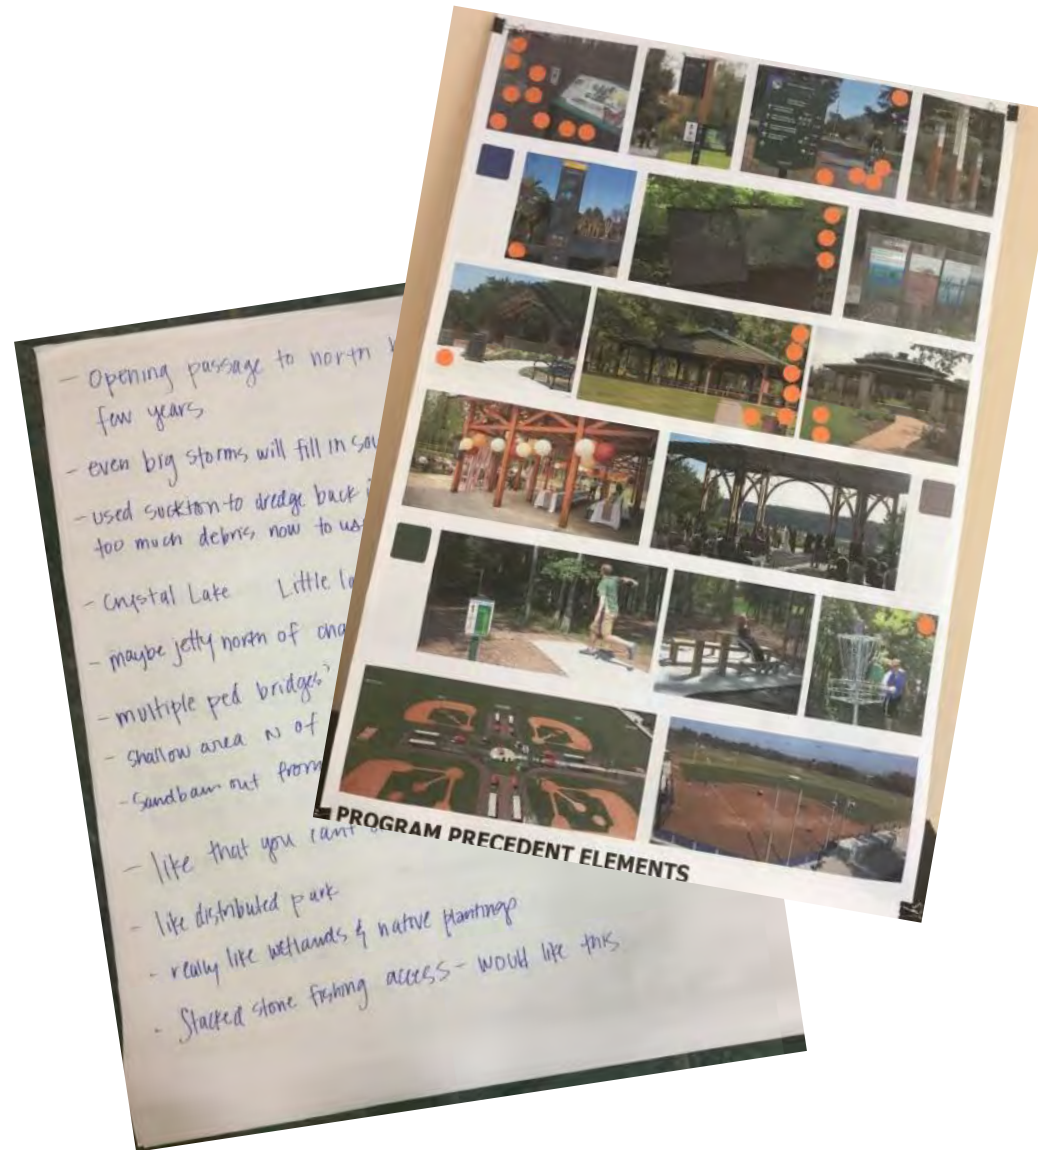 - Opening passage to north
few years
- even big storms will fill in
- used suction to dredge back
too much debris now to
- Crystal Lake Little
- maybe jetty north of
- multiple ped bridges
- Shallow area N of
- Sandbar out from
- like that you can't
- like distributed park
- really like wetlands & native plantings
- Stacked stone fishing access - would like this
PROGRAM PRECEDENT ELEMENTS